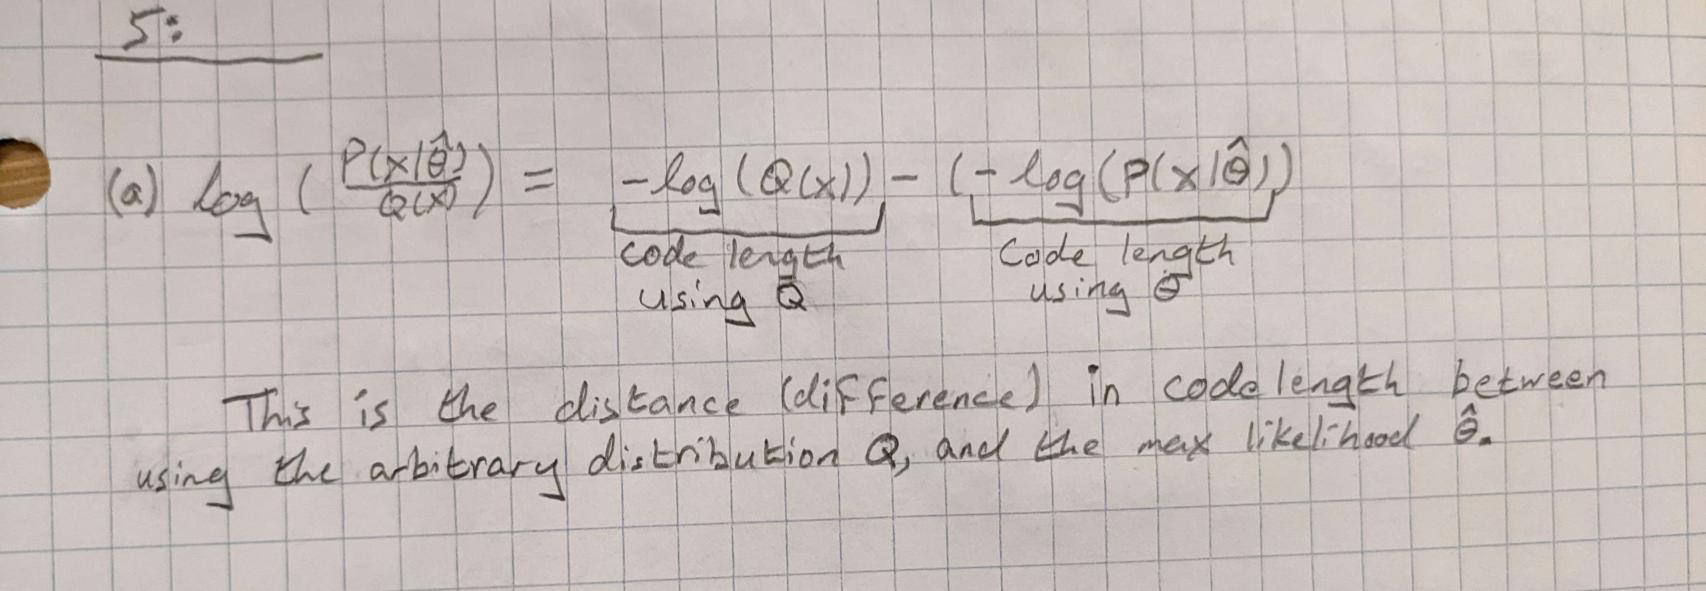 5:
(a) log ( P(x|θ̂) / Q(x) ) = -log (Q(x)) - (- log (P(x|θ̂)))
code length using Q
code length using θ̂
This is the distance (difference) in code length between
using the arbitrary distribution Q, and the max likelihood θ̂.